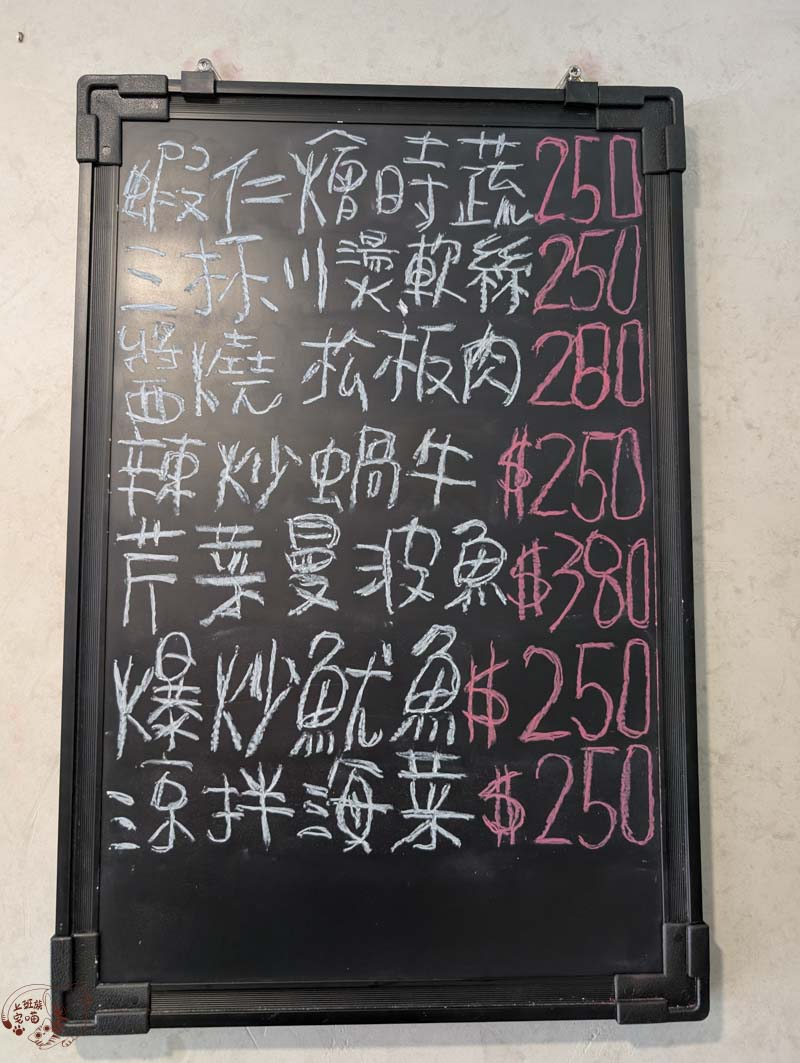 蝦仁燴時蔬250
三杯川燙軟絲250
醬燒 松板肉 280
辣炒蝸牛 $250
芹菜曼波魚$380
爆炒魷魚$250
涼拌海菜$250
上班族
宅喵